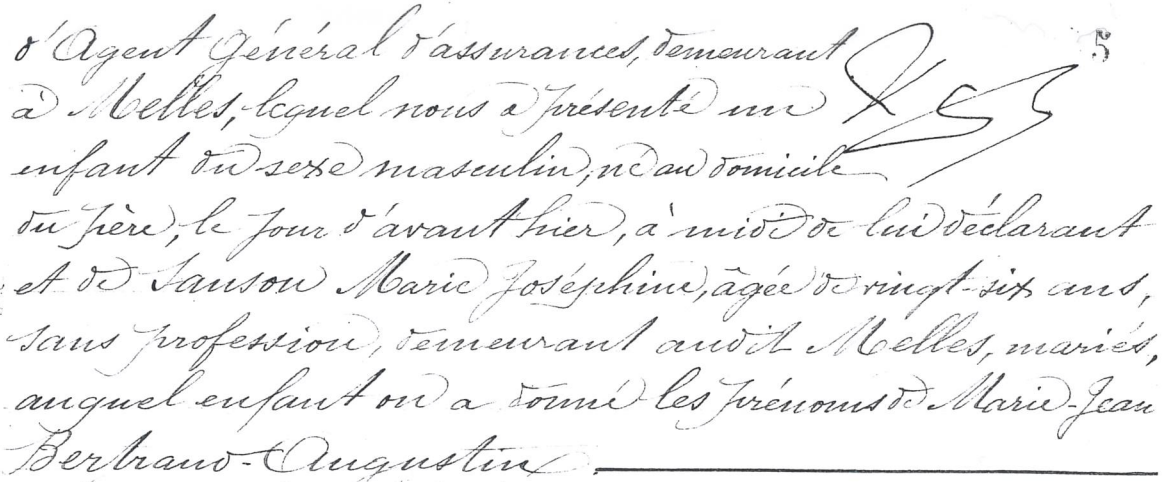 d'Agent Général d'assurances, demeurant
5
à Melles, lequel nous a présenté un
enfant du sexe masculin, né au domicile
du père, le jour d'avant hier, à midi de lui déclarant
et de Sanson Marie Joséphine, âgée de vingt-six ans,
sans profession, demeurant audit Melles, mariés,
auquel enfant on a donné les prénoms de Marie-Jean
Bertrand-Augustin